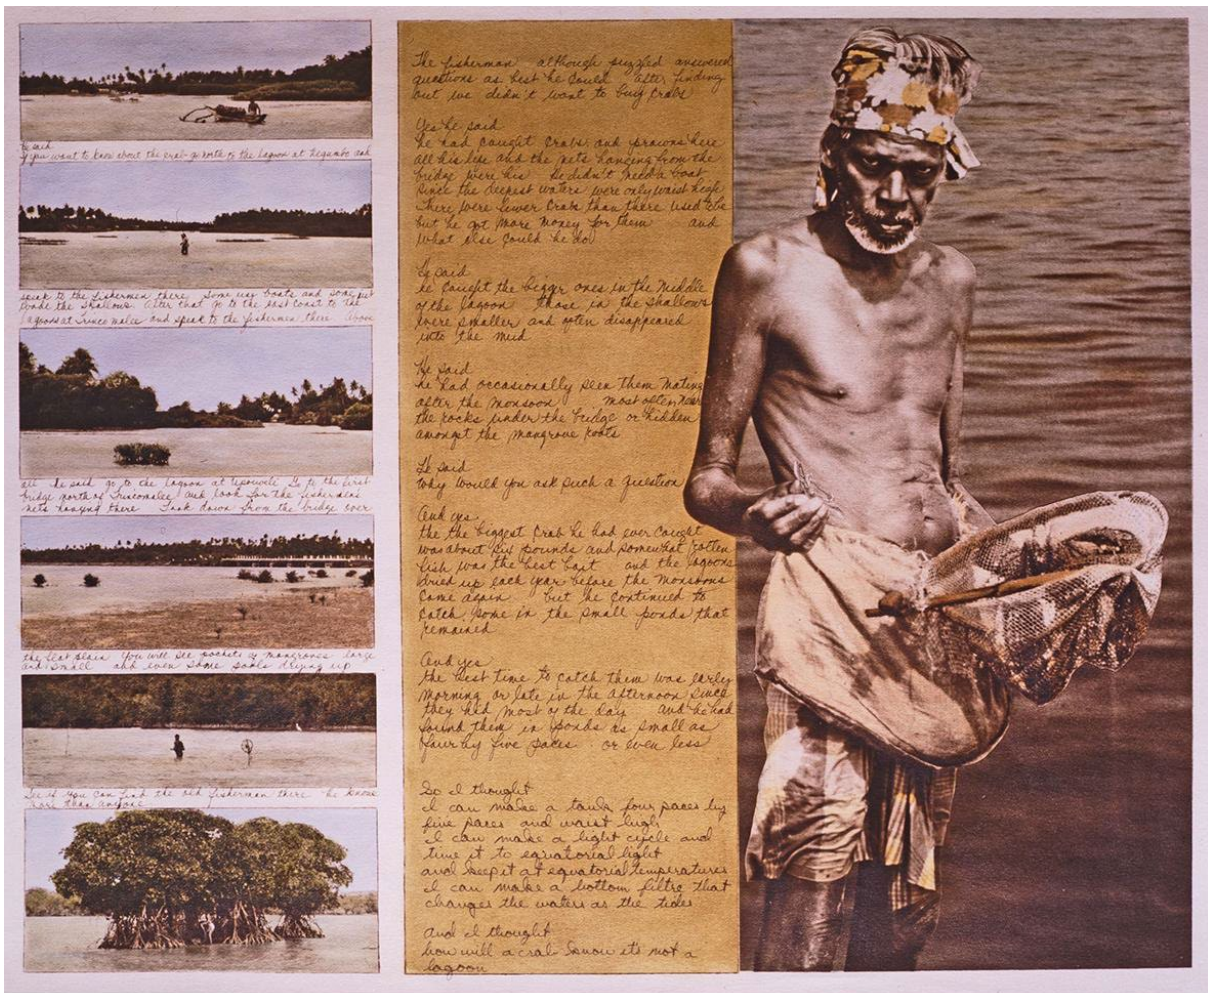 he said
if you want to know about the crab go north to the lagoon at Negumbo and
speak to the fishermen there Some use boats and some just
wade the shallows After that go to the east coast to the
lagoons at Trincomalee and speak to the fishermen there Above
all he said go to the lagoon at Upouveli Go to the first
bridge north of Trincomalee and look for the fishermens
nets hanging there Look down from the bridge over
the flat plain You will see pockets of mangroves large
and small and even some pools drying up
See if you can find the old fisherman there he knows
more than anyone
The fisherman although puzzled answered
questions as best he could after finding
out we didn't want to buy crabs
Yes he said
he had caught crabs and prawns here
all his life and the nets hanging from the
bridge were his He didn't need a boat
since the deepest waters were only waist high
There were fewer crabs than there used to be
but he got more money for them and
what else could he do
He said
he caught the bigger ones in the middle
of the lagoon those in the shallows
were smaller and often disappeared
into the mud
He said
he had occasionally seen them mating
after the monsoon most often near
the rocks under the bridge or hidden
amongst the mangrove roots
He said
why would you ask such a question
And yes
the the biggest crab he had ever caught
was about six pounds and somewhat rotten
fish was the best bait and the lagoons
dried up each year before the monsoons
came again but he continued to
catch some in the small ponds that
remained
And yes
the best time to catch them was early
morning or late in the afternoon since
they hid most of the day and he had
found them in ponds as small as
four by five paces or even less
So I thought
I can make a tank four paces by
five paces and waist high
I can make a light cycle and
time it to equatorial light
and keep it at equatorial temperatures
I can make a bottom filtre that
changes the waters as the tides
And I thought
how will a crab know it's not a
lagoon